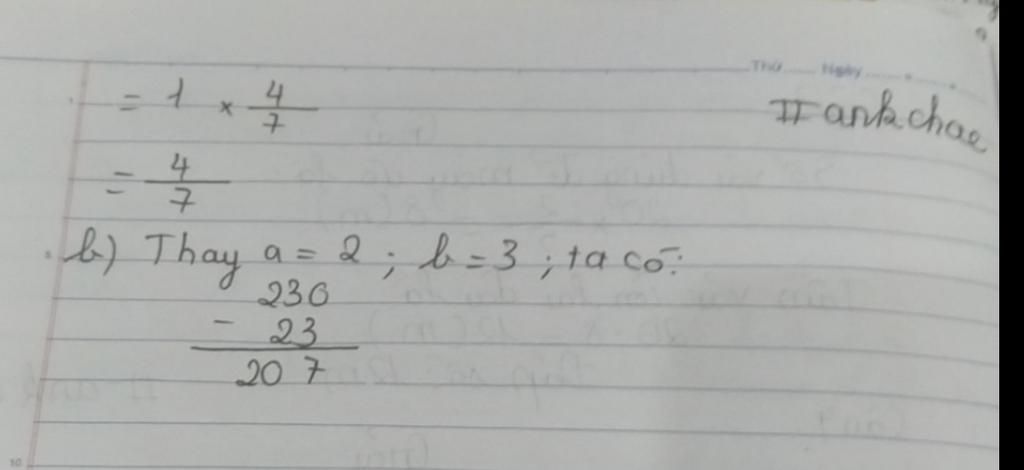 Thứ ...... Ngày ......
= 1 × 4/7
IIankchae
= 4/7
b) Thay a = 2 ; b = 3 ; ta có:
230
- 23
207